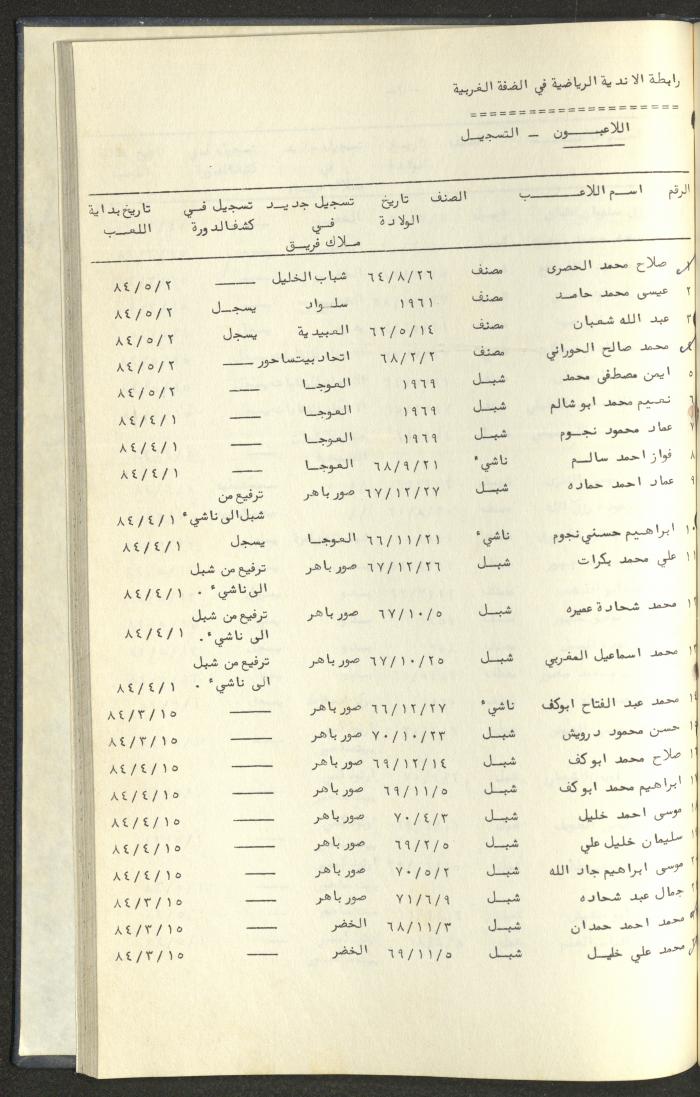 رابطة الاندية الرياضية في الضفة الغربية
====================
اللاعبـــون - التسجيـل
الرقم اسـم اللاعـــب الصنف تاريخ الولادة تسجيل جديـد فـي مـلاك فريـق تسجيل فـي كشف الدورة تاريخ بداية اللعـب
صلاح محمد الحصرى مصنف ٦٤/٨/٢٦ شباب الخليل ـــــ ٨٤/٥/٢
٢ عيسى محمد حامـد مصنف ١٩٦١ سلـواد يسجـل ٨٤/٥/٢
٣ عبد الله شعبان مصنف ٦٢/٥/١٤ العبيدية يسجل ٨٤/٥/٢
محمد صالح الحوراني مصنف ٦٨/٢/٢ اتحاد بيت ساحور ـــــ ٨٤/٥/٢
٥ ايمن مصطفى محمد شبـل ١٩٦٩ العوجـا ـــــ ٨٤/٥/٢
٦ نعيم محمد ابو شالم شبـل ١٩٦٩ العوجـا ـــــ ٨٤/٤/١
٧ عماد محمود نجـوم شبـل ١٩٦٩ العوجـا ـــــ ٨٤/٤/١
٨ فواز احمد سالـم ناشيء ٦٨/٩/٢١ العوجـا ـــــ ٨٤/٤/١
٩ عماد احمد حماده شبـل ٦٧/١٢/٢٧ صور باهر ترفيع من
شبل الى ناشيء ٨٤/٤/١
١٠ ابراهيم حسني نجوم ناشيء ٦٦/١١/٢١ العوجـا يسجل ٨٤/٤/١
١١ علي محمد بكرات شبـل ٦٧/١٢/٢٦ صور باهر ترفيع من شبل
الى ناشيء . ٨٤/٤/١
١٢ محمد شحادة عميره شبـل ٦٧/١٠/٥ صور باهر ترفيع من شبل
الى ناشيء . ٨٤/٤/١
١٣ محمد اسماعيل المغربي شبـل ٦٧/١٠/٢٥ صور باهر ترفيع من شبل
الى ناشيء . ٨٤/٤/١
١٤ محمد عبد الفتاح ابوكف ناشيء ٦٦/١٢/٢٧ صور باهر ـــــ ٨٤/٣/١٥
حسن محمود درويش شبـل ٧٠/١٠/٢٣ صور باهر ـــــ ٨٤/٣/١٥
صلاح محمد ابو كف شبـل ٦٩/١٢/١٤ صور باهر ـــــ ٨٤/٤/١٥
ابراهيم محمد ابو كف شبـل ٦٩/١١/٥ صور باهر ـــــ ٨٤/٤/١٥
موسى احمد خليل شبـل ٧٠/٤/٣ صور باهر ـــــ ٨٤/٤/١٥
سليمان خليل علي شبـل ٦٩/٢/٥ صور باهر ـــــ ٨٤/٤/١٥
موسى ابراهيم جاد الله شبـل ٧٠/٥/٢ صور باهر ـــــ ٨٤/٤/١٥
جمال عبد شحاده شبـل ٧١/٦/٩ صور باهر ـــــ ٨٤/٣/١٥
محمد احمد حمدان شبـل ٦٨/١١/٣ الخضر ـــــ ٨٤/٣/١٥
محمد علي خليـل شبـل ٦٩/١١/٥ الخضر ـــــ ٨٤/٣/١٥